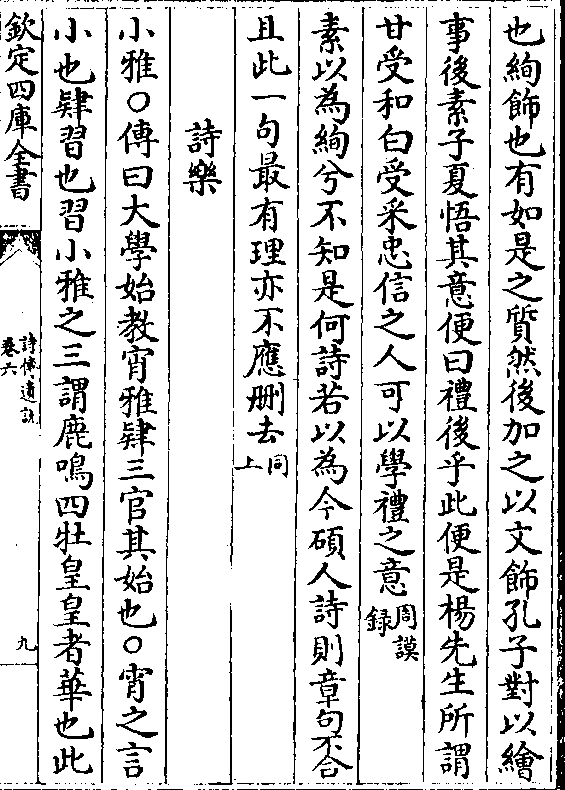 也絢飾也有如是之質然後加之以文飾孔子對以繪
事後素子夏悟其意便曰禮後乎此便是楊先生所謂
甘受和白受采忠信之人可以學禮之意周謨錄
素以為絢兮不知是何詩若以為今碩人詩則章句不合
且此一句最有理亦不應刪去同上
詩樂
小雅○傳曰大學始教宵雅肄三官其始也○宵之言
小也肄習也習小雅之三謂鹿鳴四牡皇皇者華也此
欽定四庫全書
詩傳遺說
卷六
九